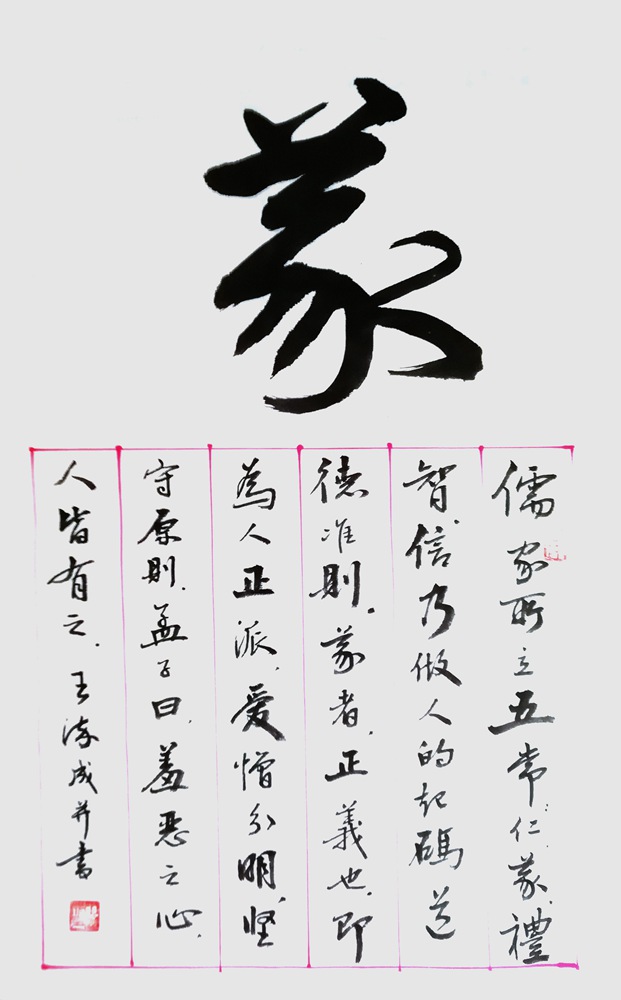 義
儒家所立五常:仁、義、禮、
智、信,乃做人的起碼道
德准則。義者,正義也,即
為人正派,爱憎分明,坚
守原則。孟子曰,羞恶之心,
人皆有之。王成并書